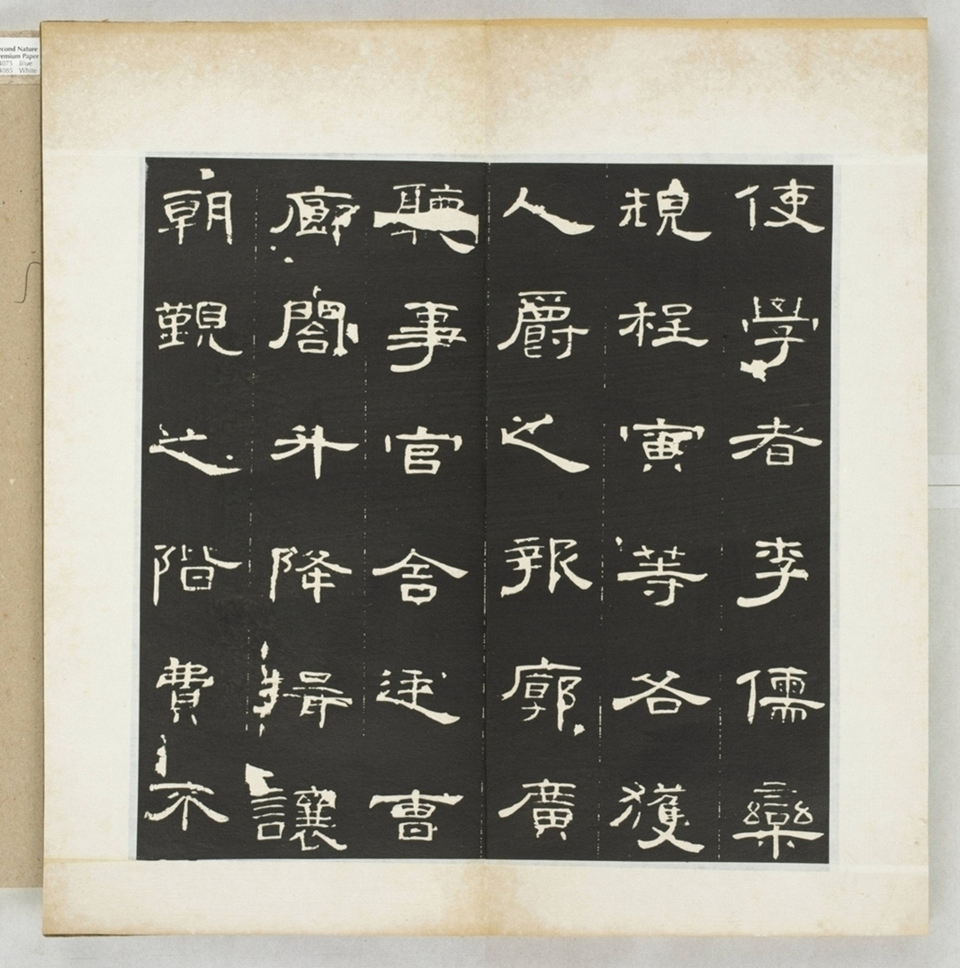 使學者李儒欒
規程寅等各獲
人爵之報廓廣
聽事官舍廷曹
廊閣升降揖讓
朝覲之階費不
Second Nature
Premium Paper
Blue
White